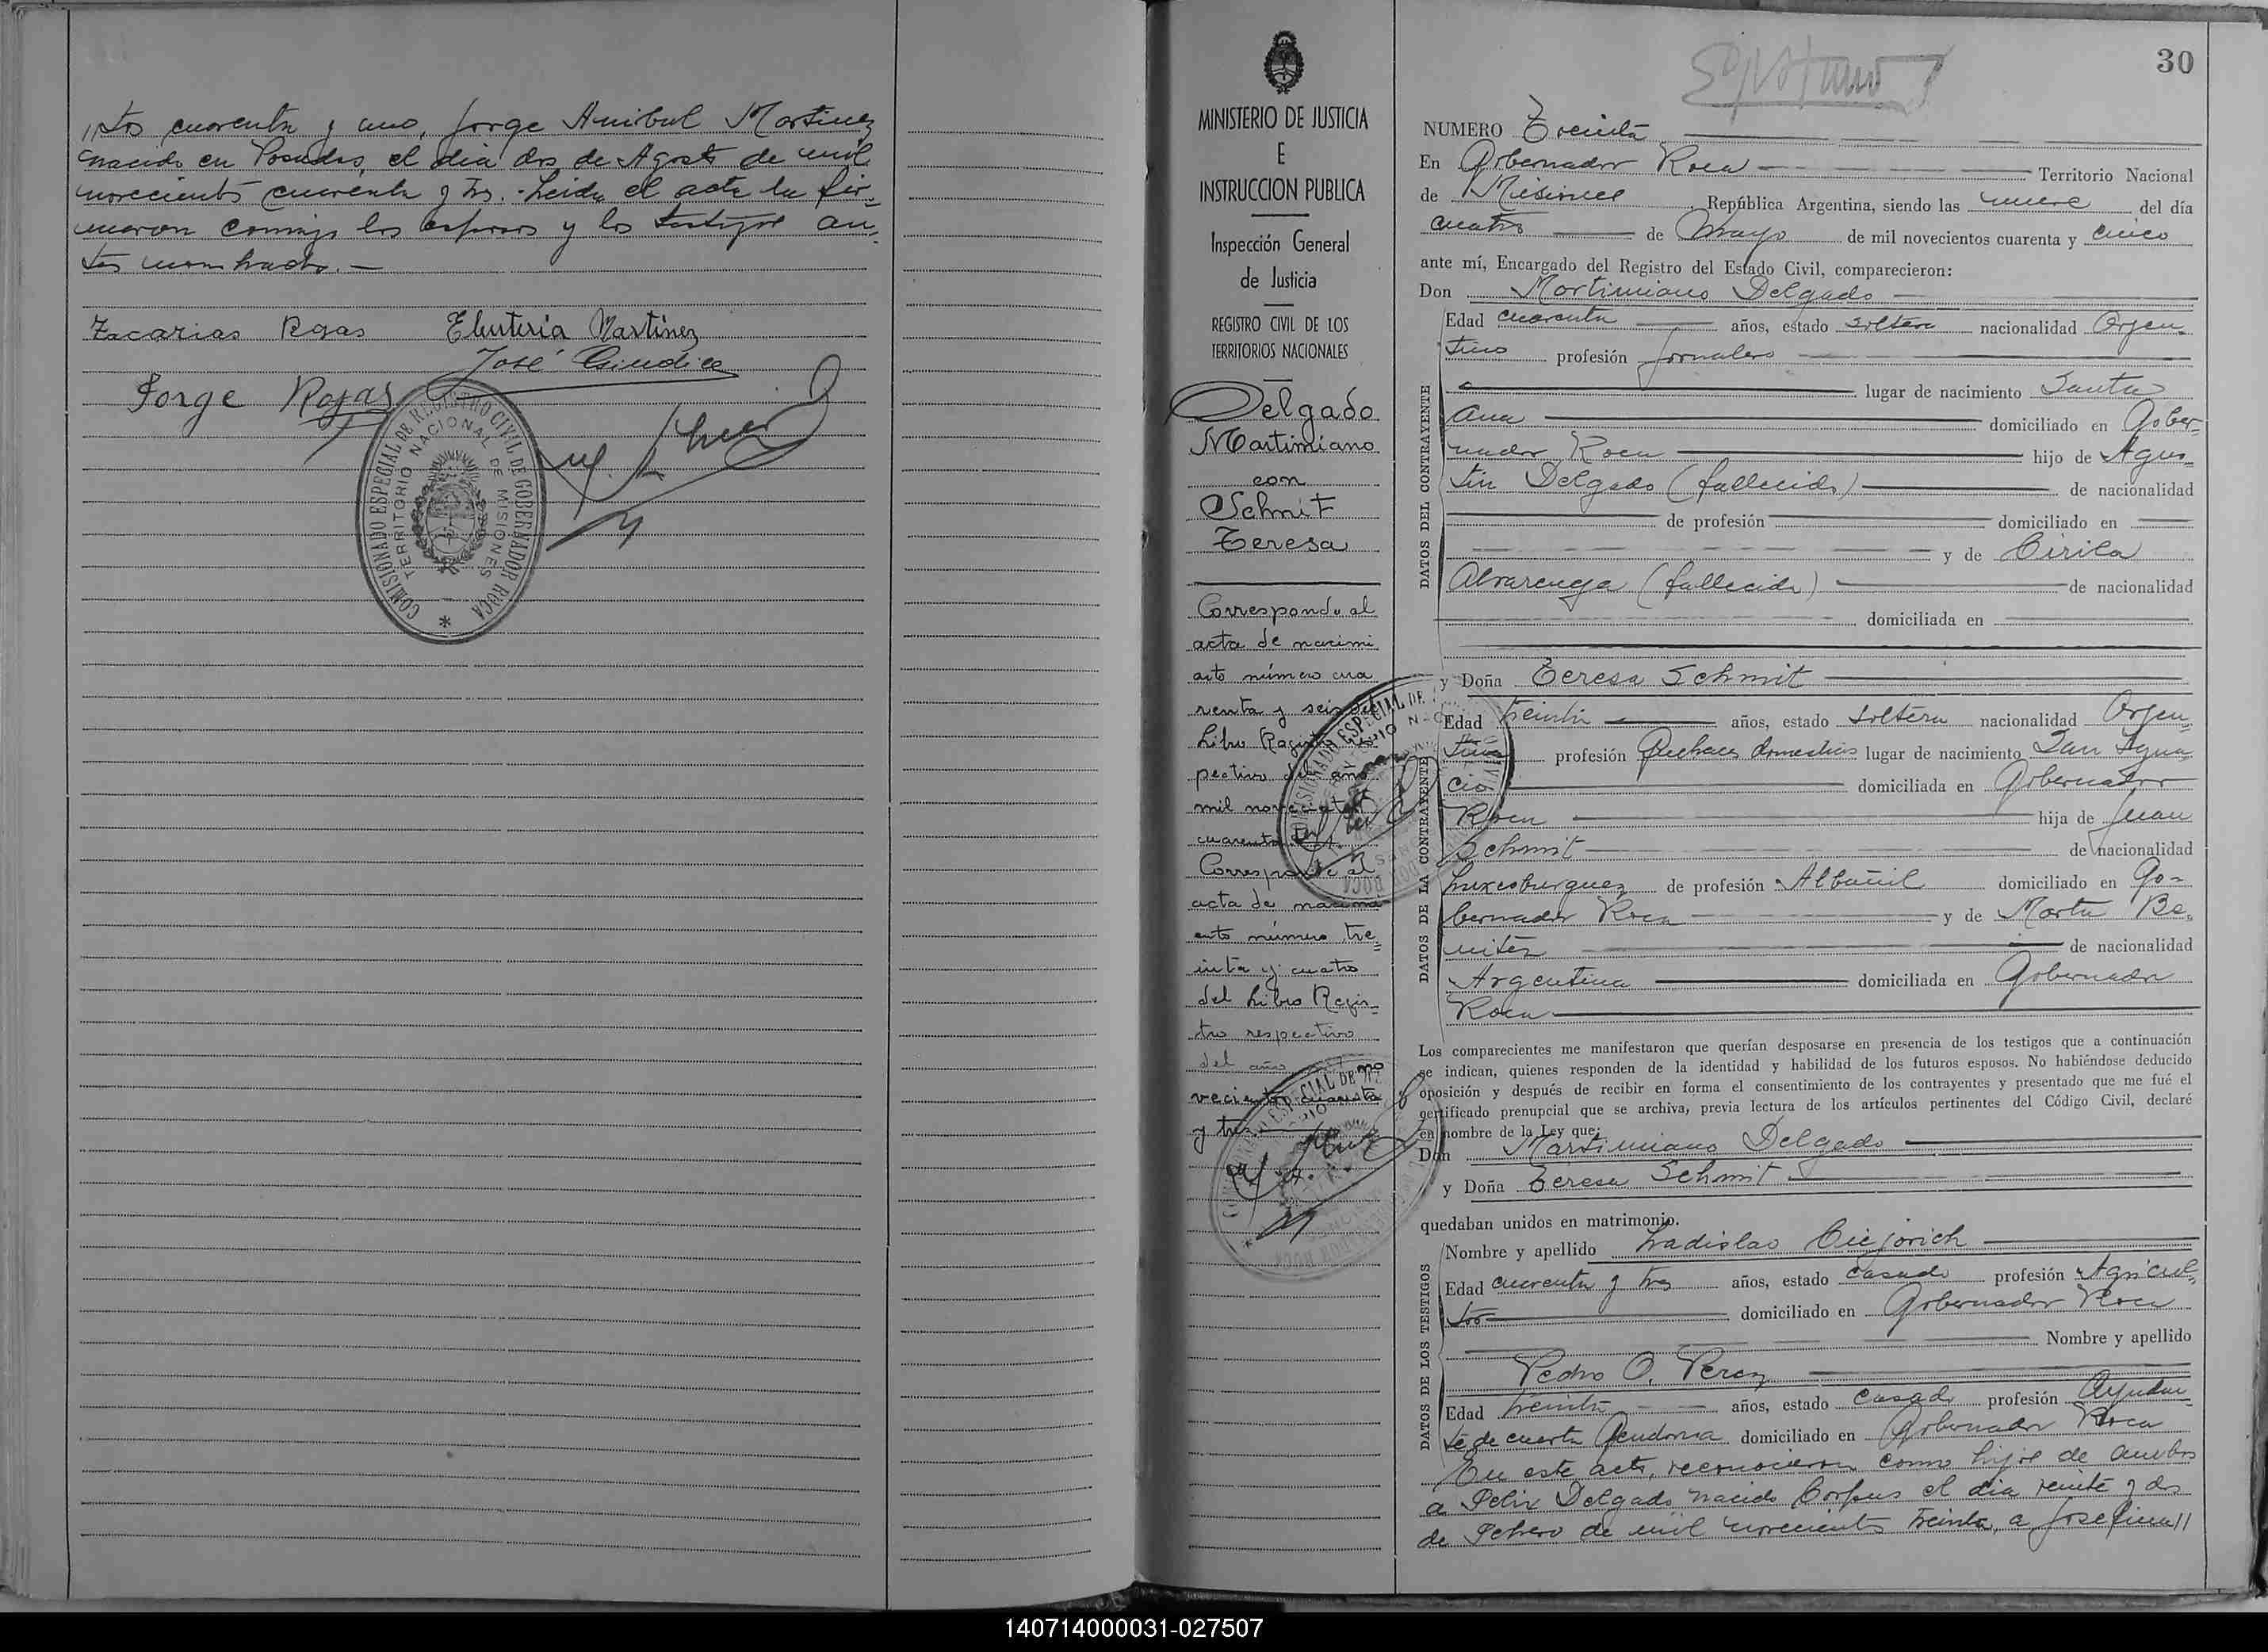 //tos cuarenta y uno, Jorge Anibal Martinez
nacido en Posadas, el dia dos de Agosto de mil
novecientos cuarenta y tres.- Leida el acta la fir=
maron conmigo los esposos y los testigos an=
tes nombrados.-
Zacarias Rojas Eleuteria Martinez
José Giudice
Jorge Rojas
COMISIONADO ESPECIAL DE REGISTRO CIVIL DE GOBERNADOR ROCA
TERRITORIO NACIONAL DE MISIONES
MINISTERIO DE JUSTICIA
E
INSTRUCCION PUBLICA
Inspección General
de Justicia
REGISTRO CIVIL DE LOS
TERRITORIOS NACIONALES
Delgado
Martimiano
con
Schmit
Teresa
Corresponde al
acta de nacimi
ento número cua
renta y seis del
Libro Registro res
pectivo del año
mil novecientos
cuarenta
Corresponde al
acta de nacimi
ento número tre=
inta y cuatro
del Libro Regis=
tro respectivo
del año mil no
vecientos cuarenta
y tres.
30
NUMERO Treinta
En Gobernador Roca Territorio Nacional
de Misiones República Argentina, siendo las nueve del día
cuatro de Mayo de mil novecientos cuarenta y cinco
ante mí, Encargado del Registro del Estado Civil, comparecieron:
Don Martimiano Delgado
DATOS DEL CONTRAYENTE
Edad cuarenta años, estado soltero nacionalidad Argen=
tino profesión Jornalero
lugar de nacimiento Santa
Ana domiciliado en Gober=
nador Roca hijo de Agus=
tin Delgado (fallecido) de nacionalidad
de profesión domiciliado en
y de Cirila
Alvarenga (fallecida) de nacionalidad
domiciliada en
y Doña Teresa Schmit
DATOS DE LA CONTRAYENTE
Edad treinta años, estado soltera nacionalidad Argen=
tina profesión Quehaceres domesticos lugar de nacimiento San Igna
cio domiciliada en Gobernador
Roca hija de Juan
Schmit de nacionalidad
Luxesburguez de profesión Albañil domiciliado en Go=
bernador Roca y de Marta Be=
nitez de nacionalidad
Argentina domiciliada en Gobernador
Roca
Los comparecientes me manifestaron que querían desposarse en presencia de los testigos que a continuación
se indican, quienes responden de la identidad y habilidad de los futuros esposos. No habiéndose deducido
oposición y después de recibir en forma el consentimiento de los contrayentes y presentado que me fué el
certificado prenupcial que se archiva, previa lectura de los artículos pertinentes del Código Civil, declaré
en nombre de la Ley que:
Don Martimiano Delgado
y Doña Teresa Schmit
quedaban unidos en matrimonio.
DATOS DE LOS TESTIGOS
Nombre y apellido Ladislao Ciejorich
Edad cuarenta y tres años, estado casado profesión Agricul=
tor domiciliado en Gobernador Roca
Nombre y apellido
Pedro O. Perez
Edad treinta años, estado casado profesión Ayudan
te de cuarta Gendarme domiciliado en Gobernador Roca
En este acto, reconocieron como hijos de ambos
a Felix Delgado nacido Corpus el dia veinte y dos
de Febrero de mil novecientos treinta, a Josefina//
140714000031-027507